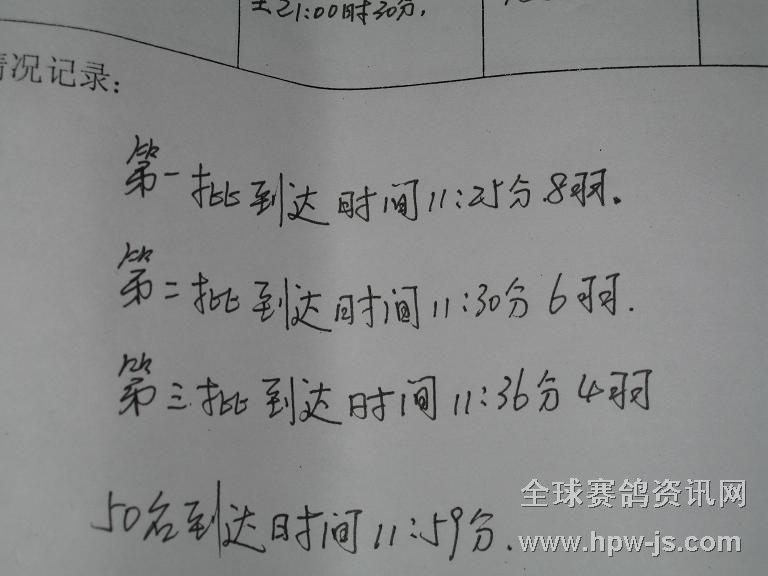 至21:00时30分.
情况记录:
第一批到达时间11:25分.8羽.
第二批到达时间11:30分6羽.
第三批到达时间11:36分4羽
50名到达时间11:59分.
全球赛鸽资讯网
www.hpw-js.com